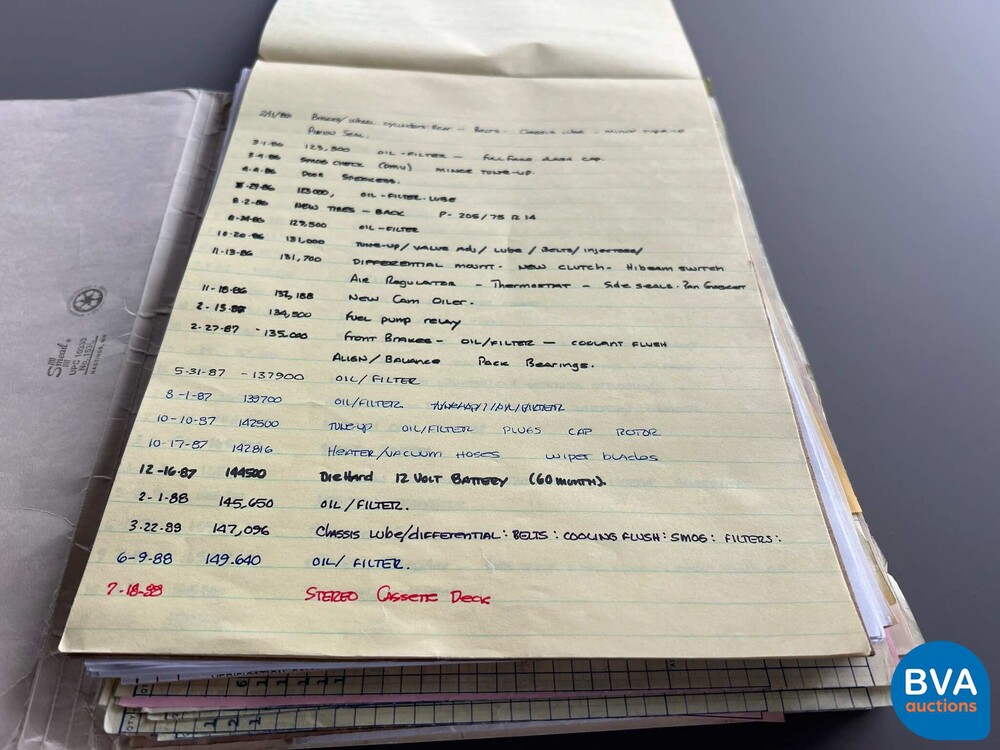 2/11/86 Brakes/Wheel cylinders: Rear - Belts - Chassis Lube - Minor Tune-up
Pinion Seal.
3-1-86 123,500 OIL-FILTER -
3-4-86 SMOG CHECK (DMV) MINOR TUNE-UP.
4-4-86 DOOR SPEAKERS.
OIL-FILTER-LUBE
8-2-86 NEW TIRES - BACK P-205/75 R 14
8-24-86 129,500 OIL-FILTER
10-20-86 131,000 TUNE-UP/ VALVE ADJ/ LUBE / BELTS/ INJECTORS/
11-13-86 131,700 DIFFERENTIAL MOUNT - NEW CLUTCH - Hibeam SWITCH
AIR REGULATOR - THERMOSTAT - Side SEALS. Pan GASKET
11-18-86 132,188 NEW CAM OILER.
2-15-87 134,500 FUEL PUMP RELAY
2-27-87 -135,000 FRONT BRAKES - OIL/FILTER - COOLANT FLUSH
ALIGN/BALANCE PACK BEARINGS.
5-31-87 -137900 OIL/FILTER
8-1-87 139700 OIL/FILTER
10-10-87 142500 TUNE-UP OIL/FILTER PLUGS CAP ROTOR
10-17-87 142816 HEATER/VACUUM HOSES WIPER blades
12-16-87 144500 DIEHARD 12 VOLT BATTERY (60 MONTH).
2-1-88 145,650 OIL/FILTER.
3-22-89 147,096 CHASSIS LUBE/DIFFERENTIAL: BELTS: COOLING FLUSH: SMOG: FILTERS:
6-9-88 149.640 OIL/ FILTER.
7-18-88 STEREO CASSETTE DECK
Smead
UPC 10330
HASTINGS, MN
BVA
auctions